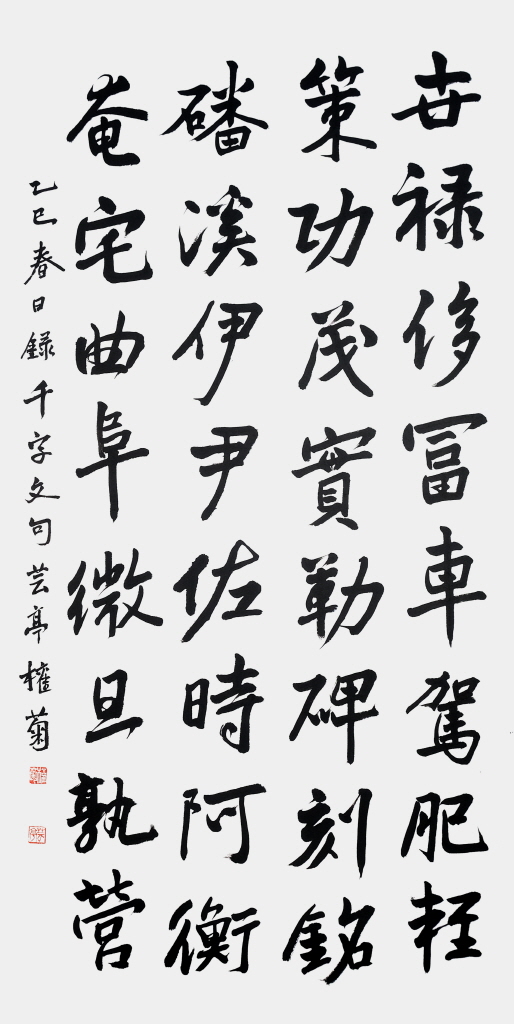 世祿侈冨車駕肥輕
策功茂實勒碑刻銘
磻溪伊尹佐時阿衡
奄宅曲阜微旦孰營
乙巳春日録千字文句芸亭權菊